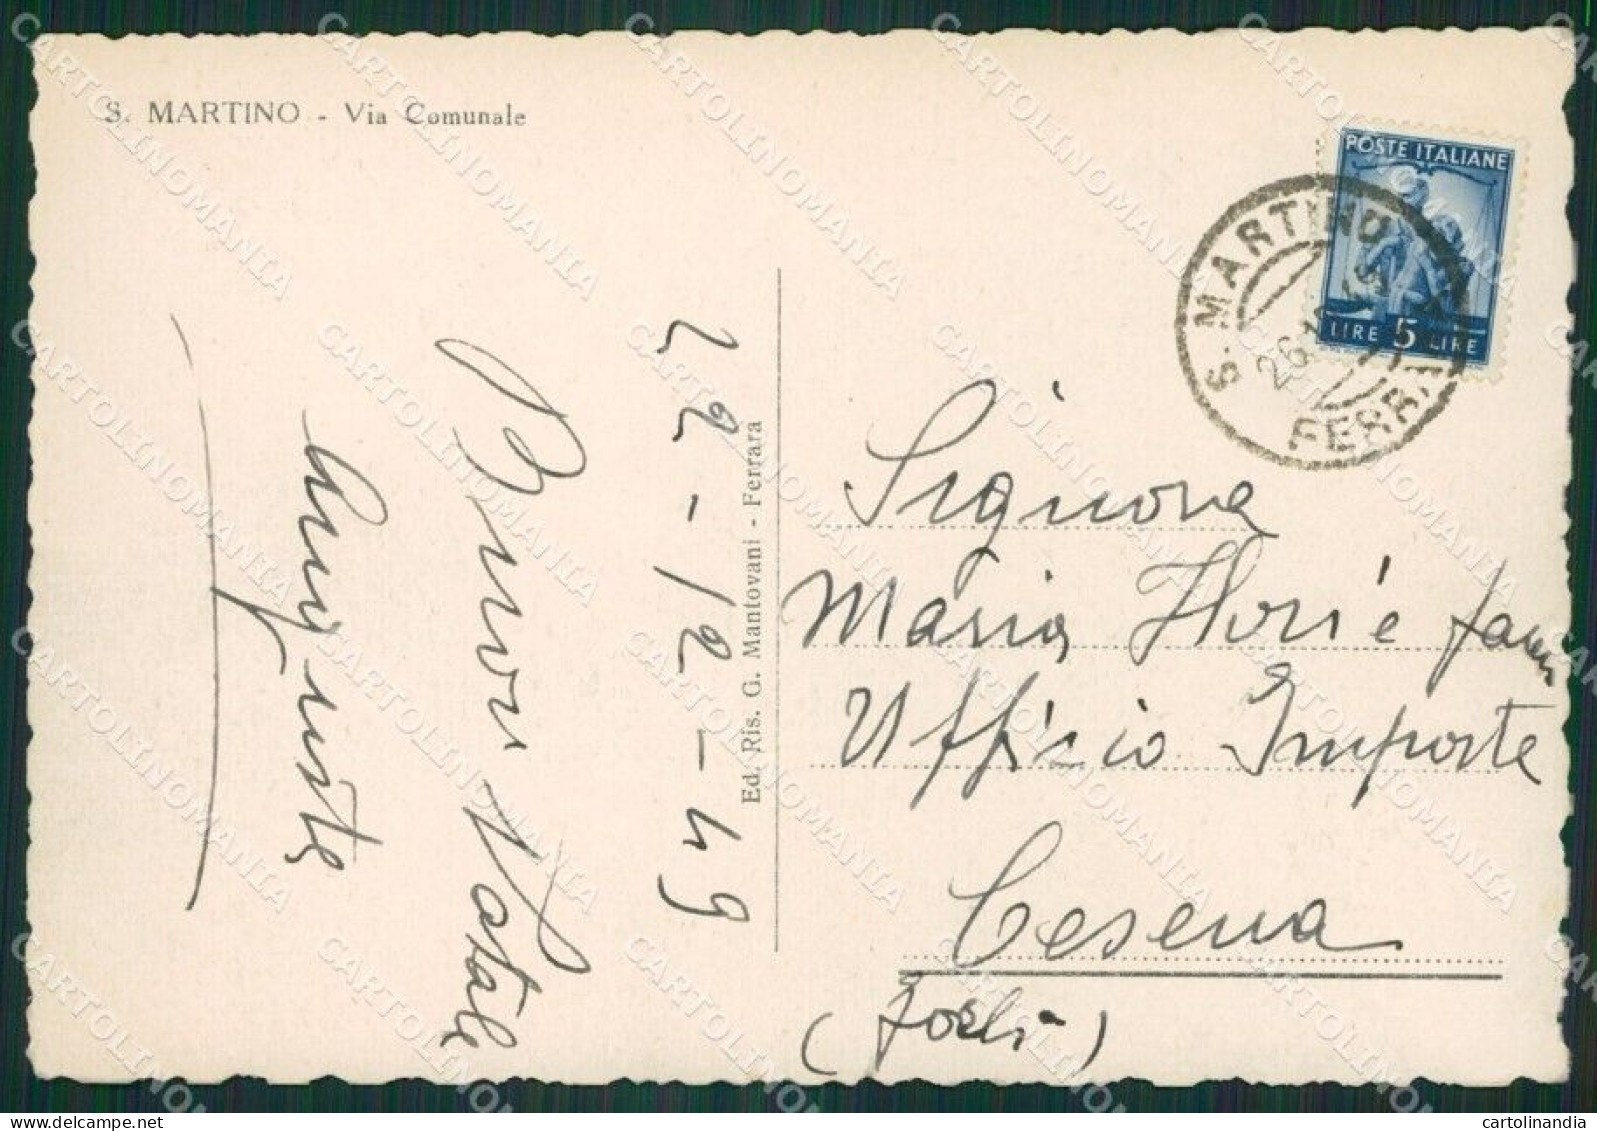 S. MARTINO - Via Comunale
POSTE ITALIANE
LIRE 5 LIRE
S. MARTINO
FERRA
26
22-12-49
Buon Natale
Ed. Ris. G. Mantovani - Ferrara
Signora
Maria
Ufficio Imposte
Cesena
(Forlì)
CARTOLINOMANIA
cartolinandia